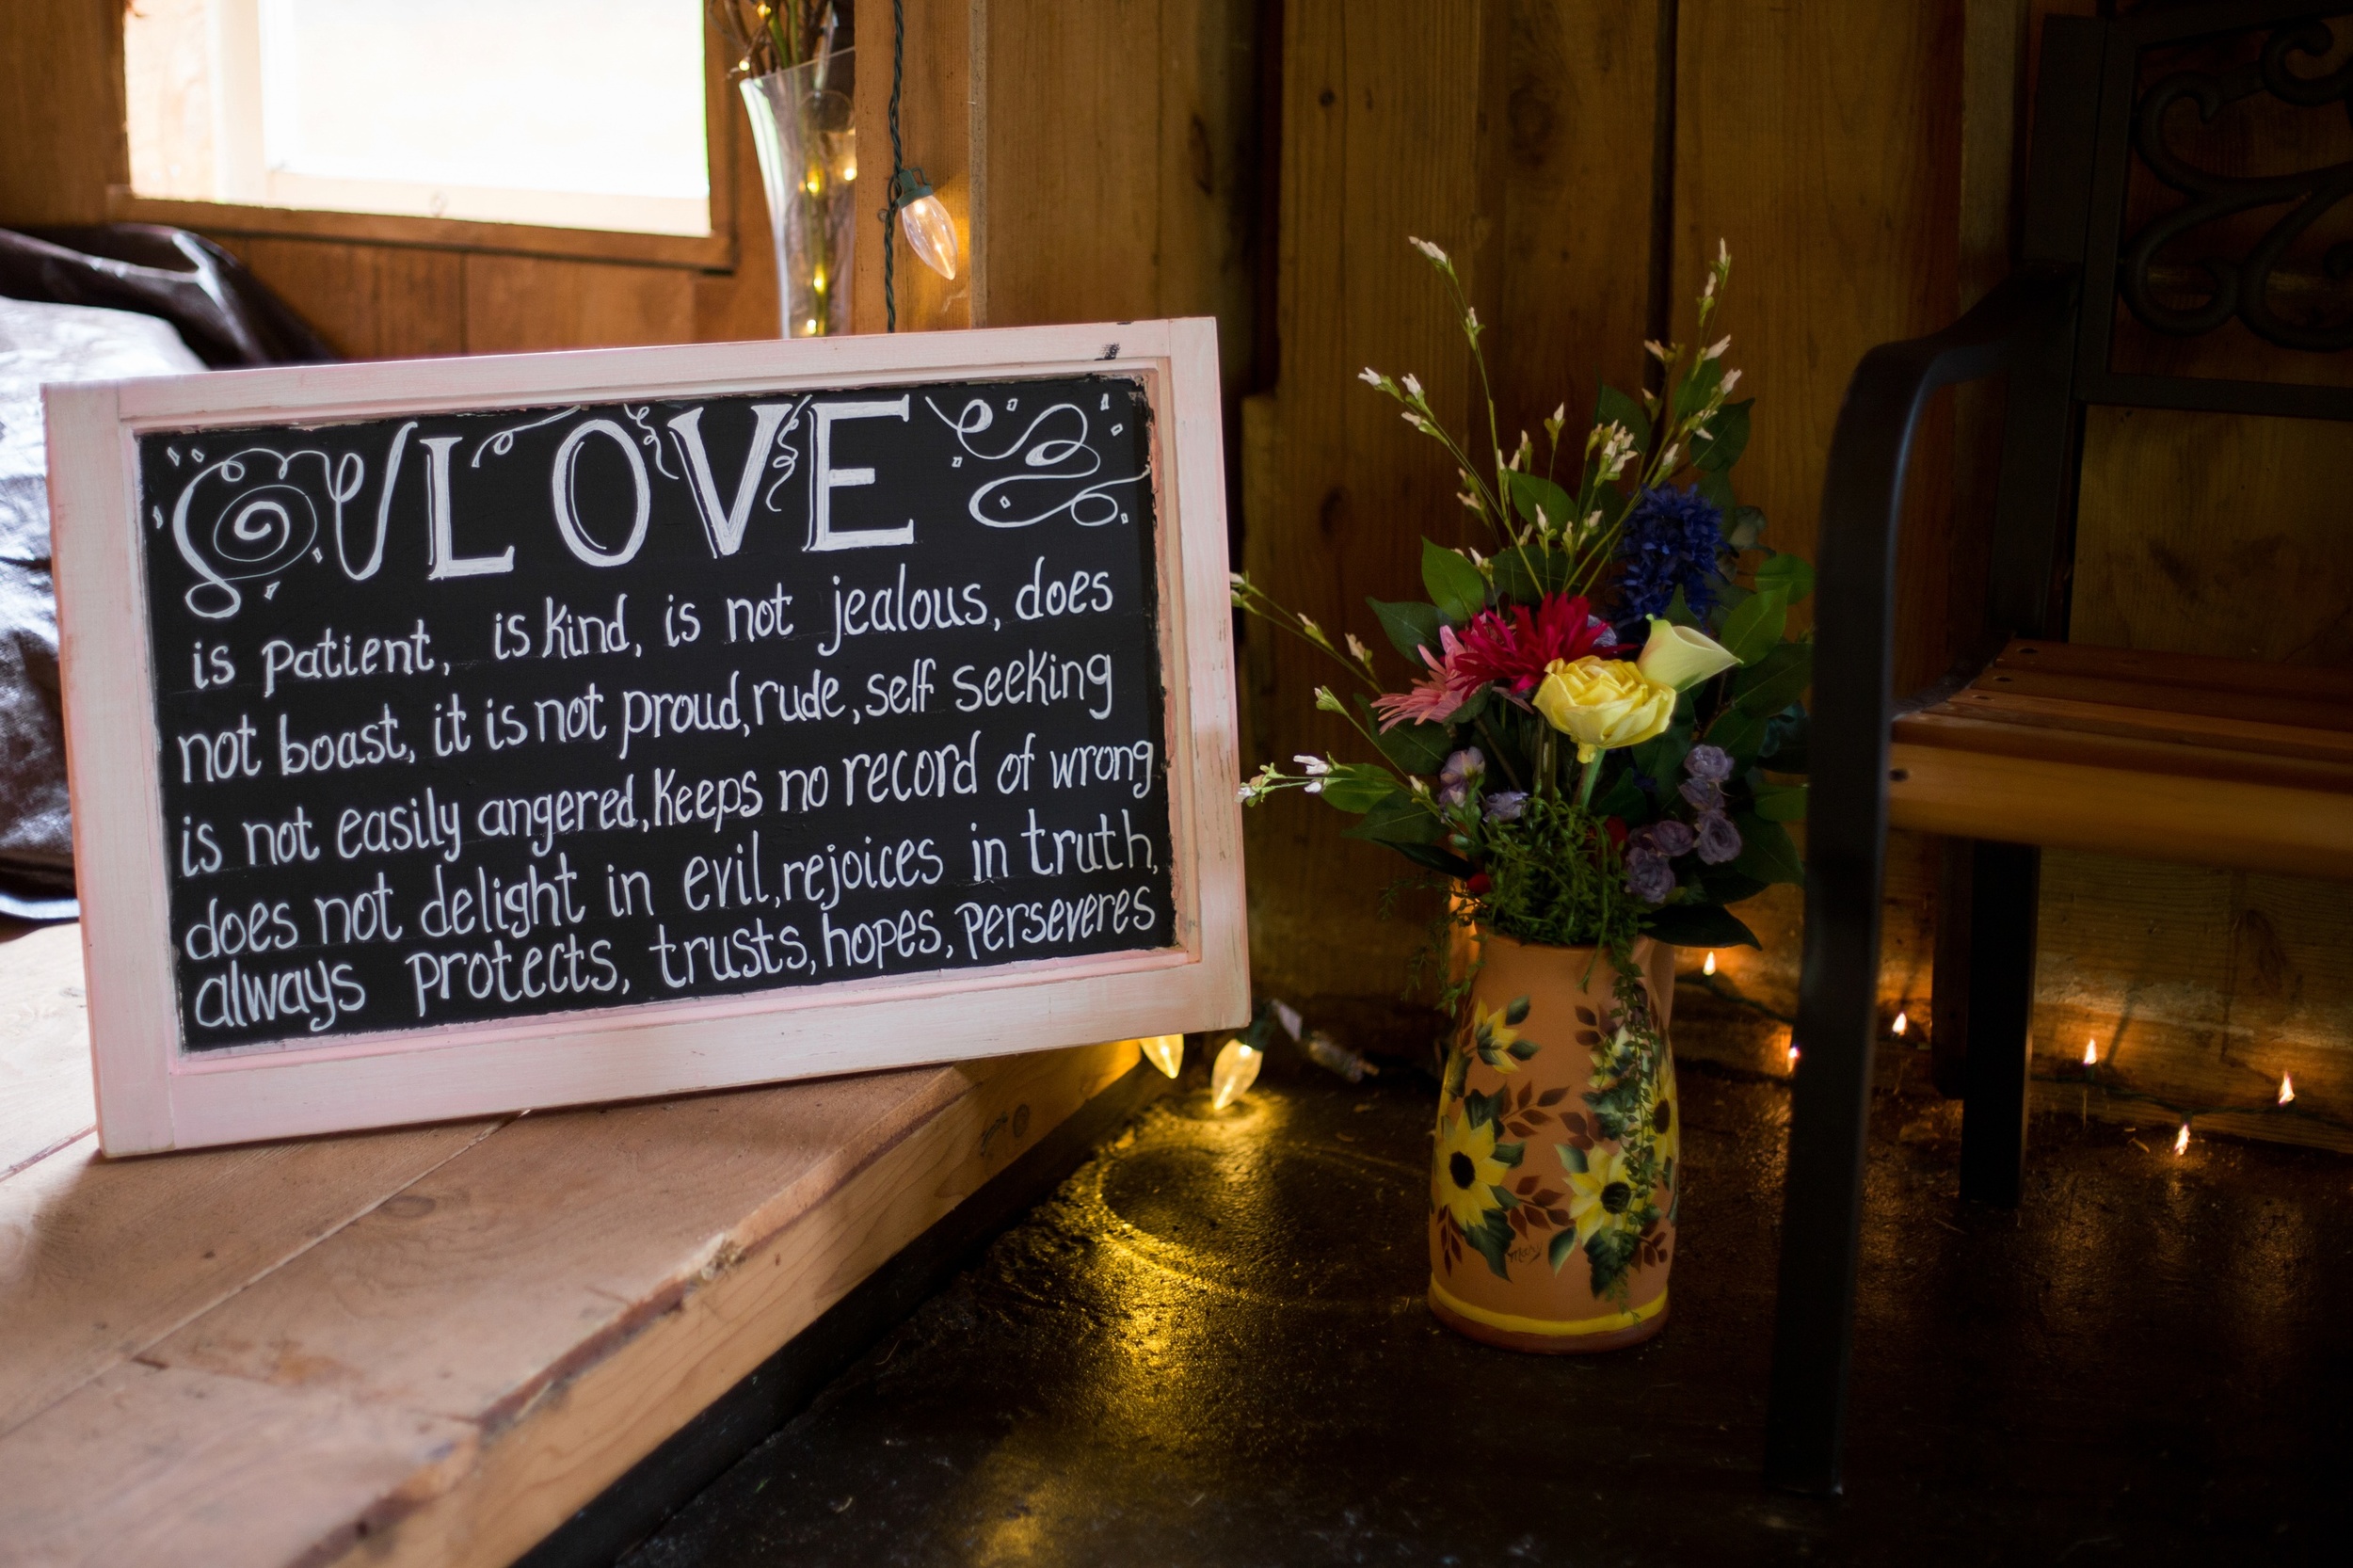 LOVE
is patient, is kind, is not jealous, does
not boast, it is not proud, rude, self seeking
is not easily angered, keeps no record of wrong
does not delight in evil, rejoices in truth,
always protects, trusts, hopes, perseveres